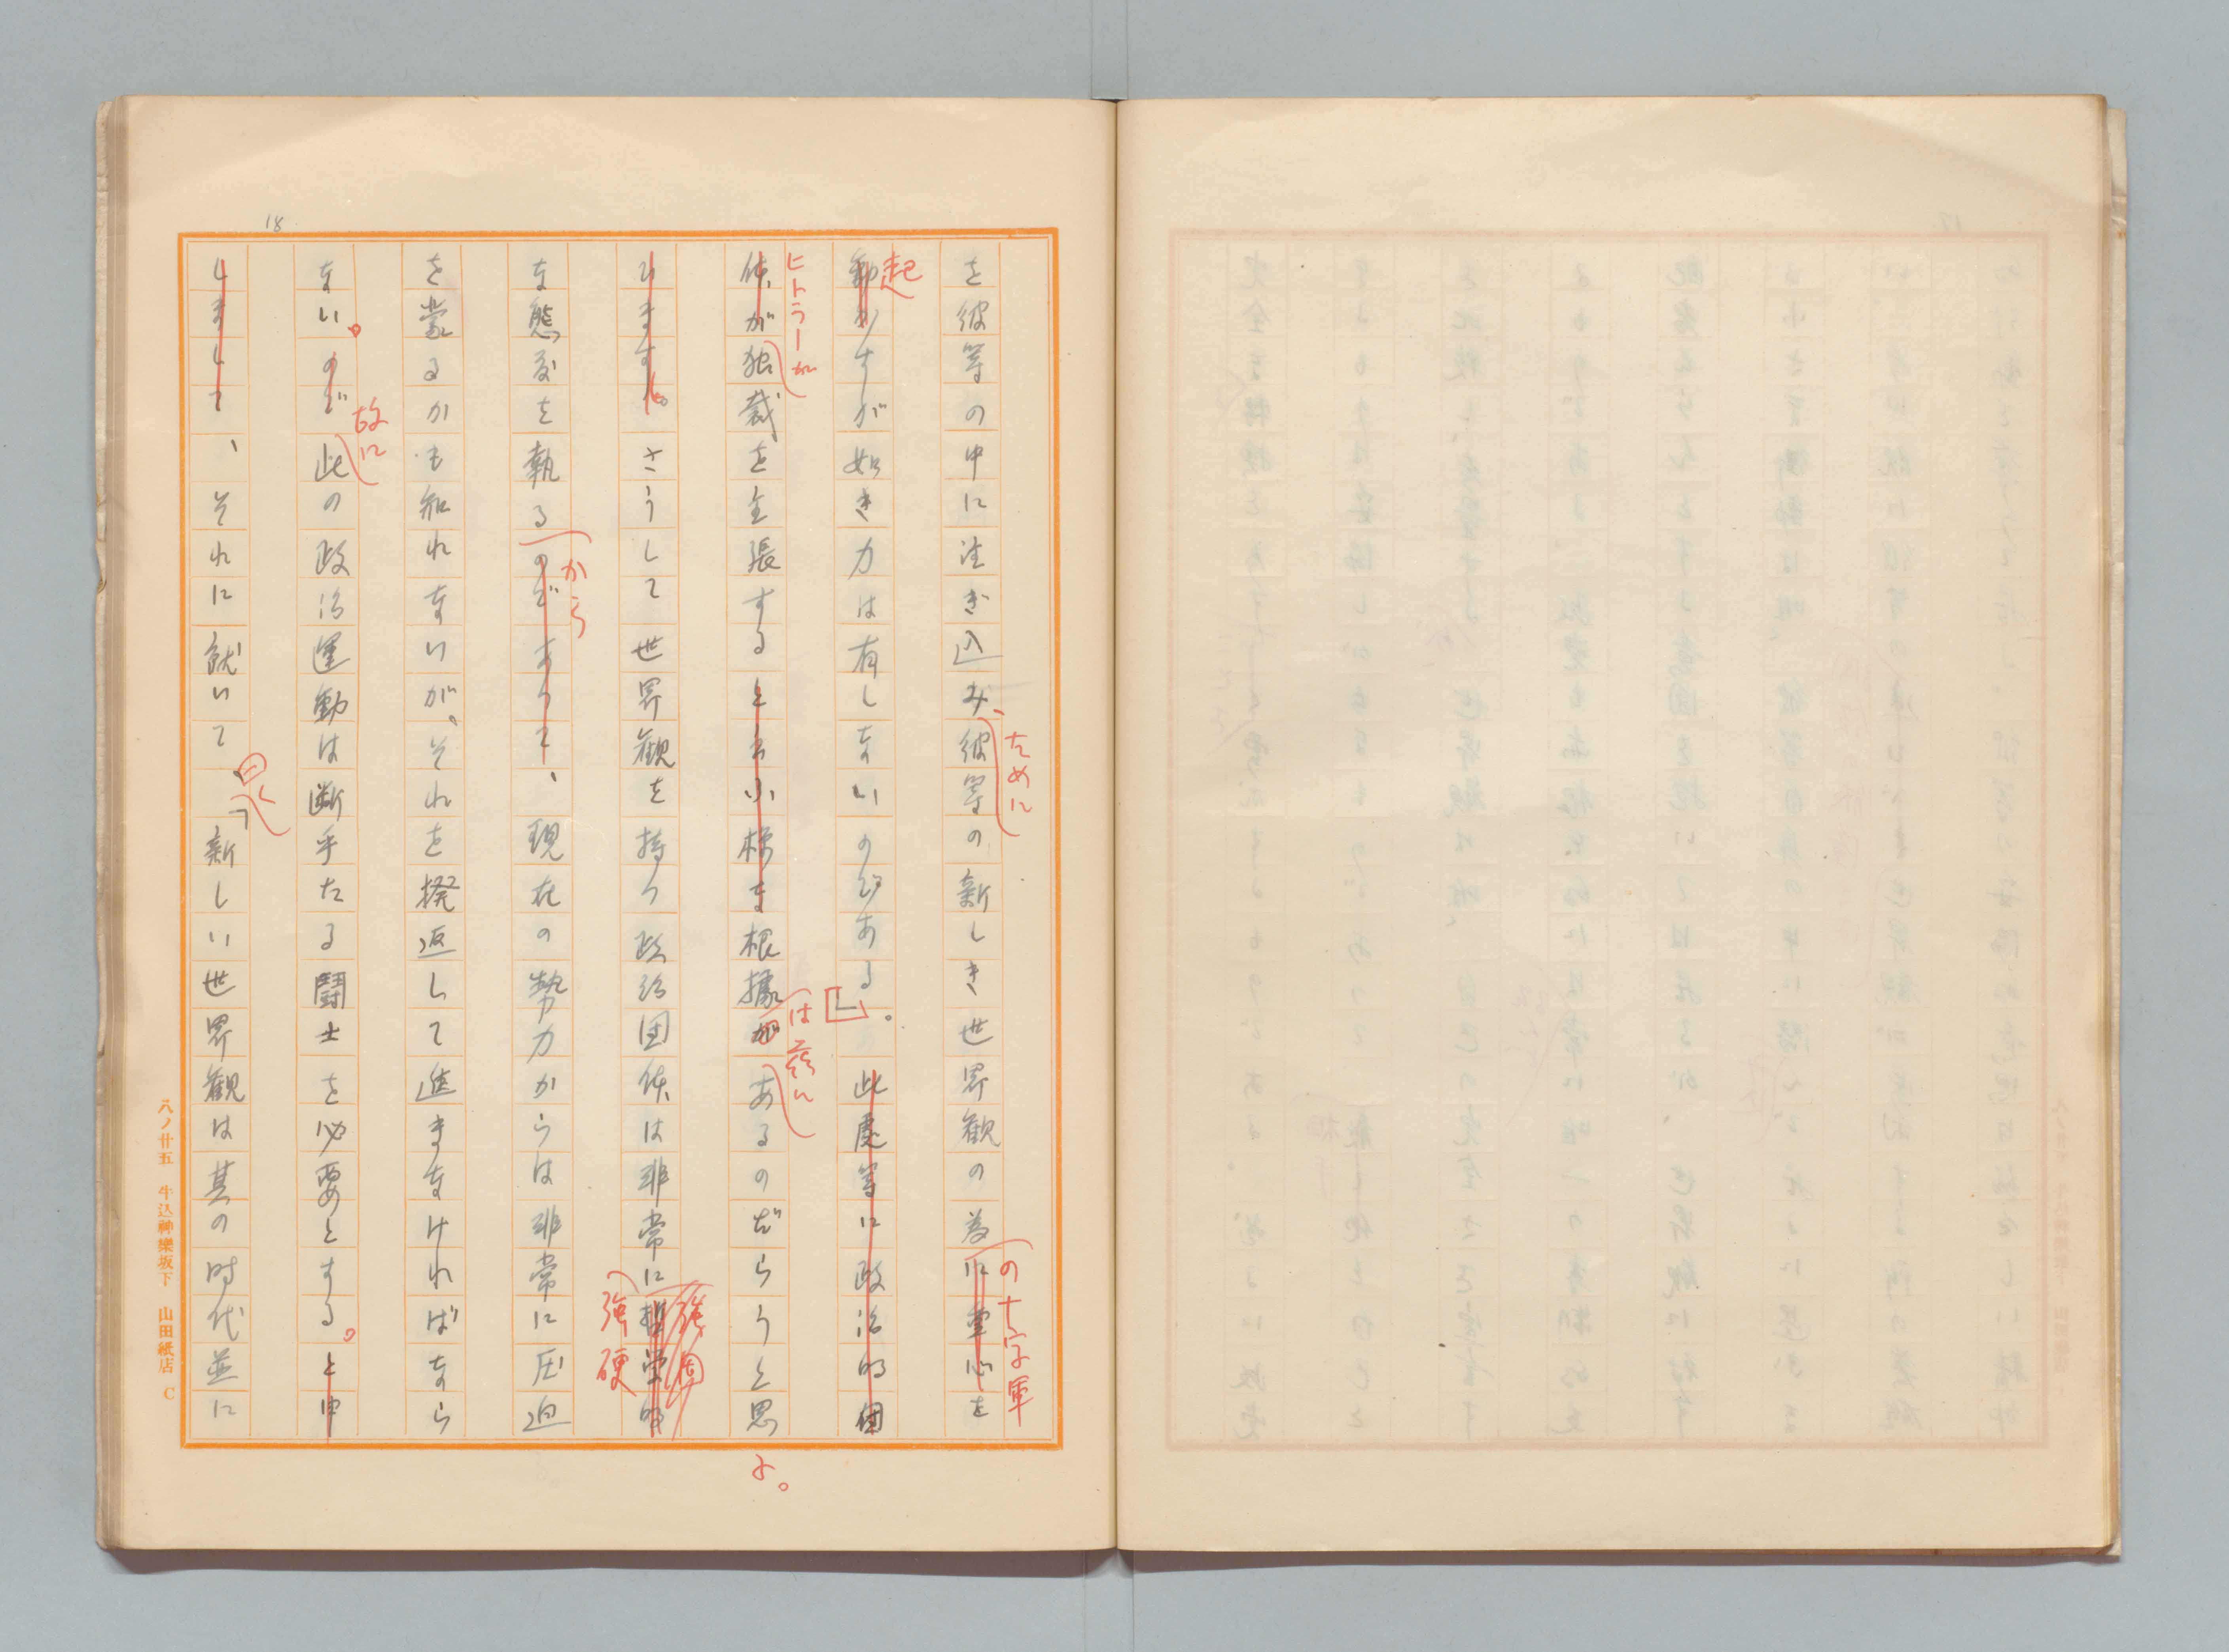 18
を彼等の中に注ぎ込み、彼等の新しき世界観の為に童心を
ために
の十字軍
動かすが如き力は有しないのである」。此處等に政治的團
起
体が独裁を主張すると云ふ様な根據があるのだらうと思
ヒトラーが
は茲に
よ。
ひます。さうして世界観を持つ政治団体は非常に哲学的
強固
強硬
な態度を執るのでありまて、現在の勢力からは非常に圧迫
から
を蒙るかも知れないが、それを撥返して進まなければなら
ない。ので此の政治運動は断乎たる闘士を必要とする。と申
故に
しまして、それに就いて「新しい世界観は其の時代並に
曰く
八ノ廿五 牛込神樂坂下 山田紙店 C